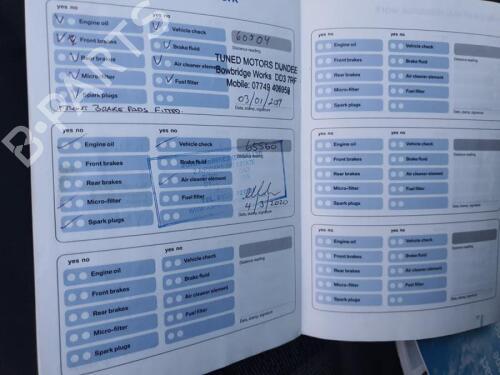 yes no
yes no
Engine oil
Vehicle check
60904
Front brakes
Brake fluid
Distance reading
Rear brakes
Air cleaner element
TUNED MOTORS DUNDEE
Bowbridge Works DD3 7RF
Mobile: 07749 406958
Micro-filter
Fuel filter
Spark plugs
FRONT BRAKE PADS FITTED.
Date, stamp, signature
yes no
yes no
Engine oil
Vehicle check
65560
Distance reading
Front brakes
Brake fluid
Rear brakes
Air cleaner element
Micro-filter
Fuel filter
4/3/2020
Spark plugs
Date, stamp, signature
yes no
yes no
Engine oil
Vehicle check
Distance reading
Front brakes
Brake fluid
Rear brakes
Air cleaner element
Micro-filter
Fuel filter
Spark plugs
Date, stamp, signature
yes no
yes no
Engine oil
Vehicle check
Distance reading
Front brakes
Brake fluid
Rear brakes
Air cleaner element
Micro-filter
Fuel filter
Spark plugs
Date, stamp, signature
yes no
yes no
Engine oil
Vehicle check
Distance reading
Front brakes
Brake fluid
Rear brakes
Air cleaner element
Micro-filter
Fuel filter
Spark plugs
Date, stamp, signature
yes no
yes no
Engine oil
Vehicle check
Distance reading
Front brakes
Brake fluid
Rear brakes
Air cleaner element
Micro-filter
Fuel filter
Spark plugs
Date, stamp, signature
B-PARTS